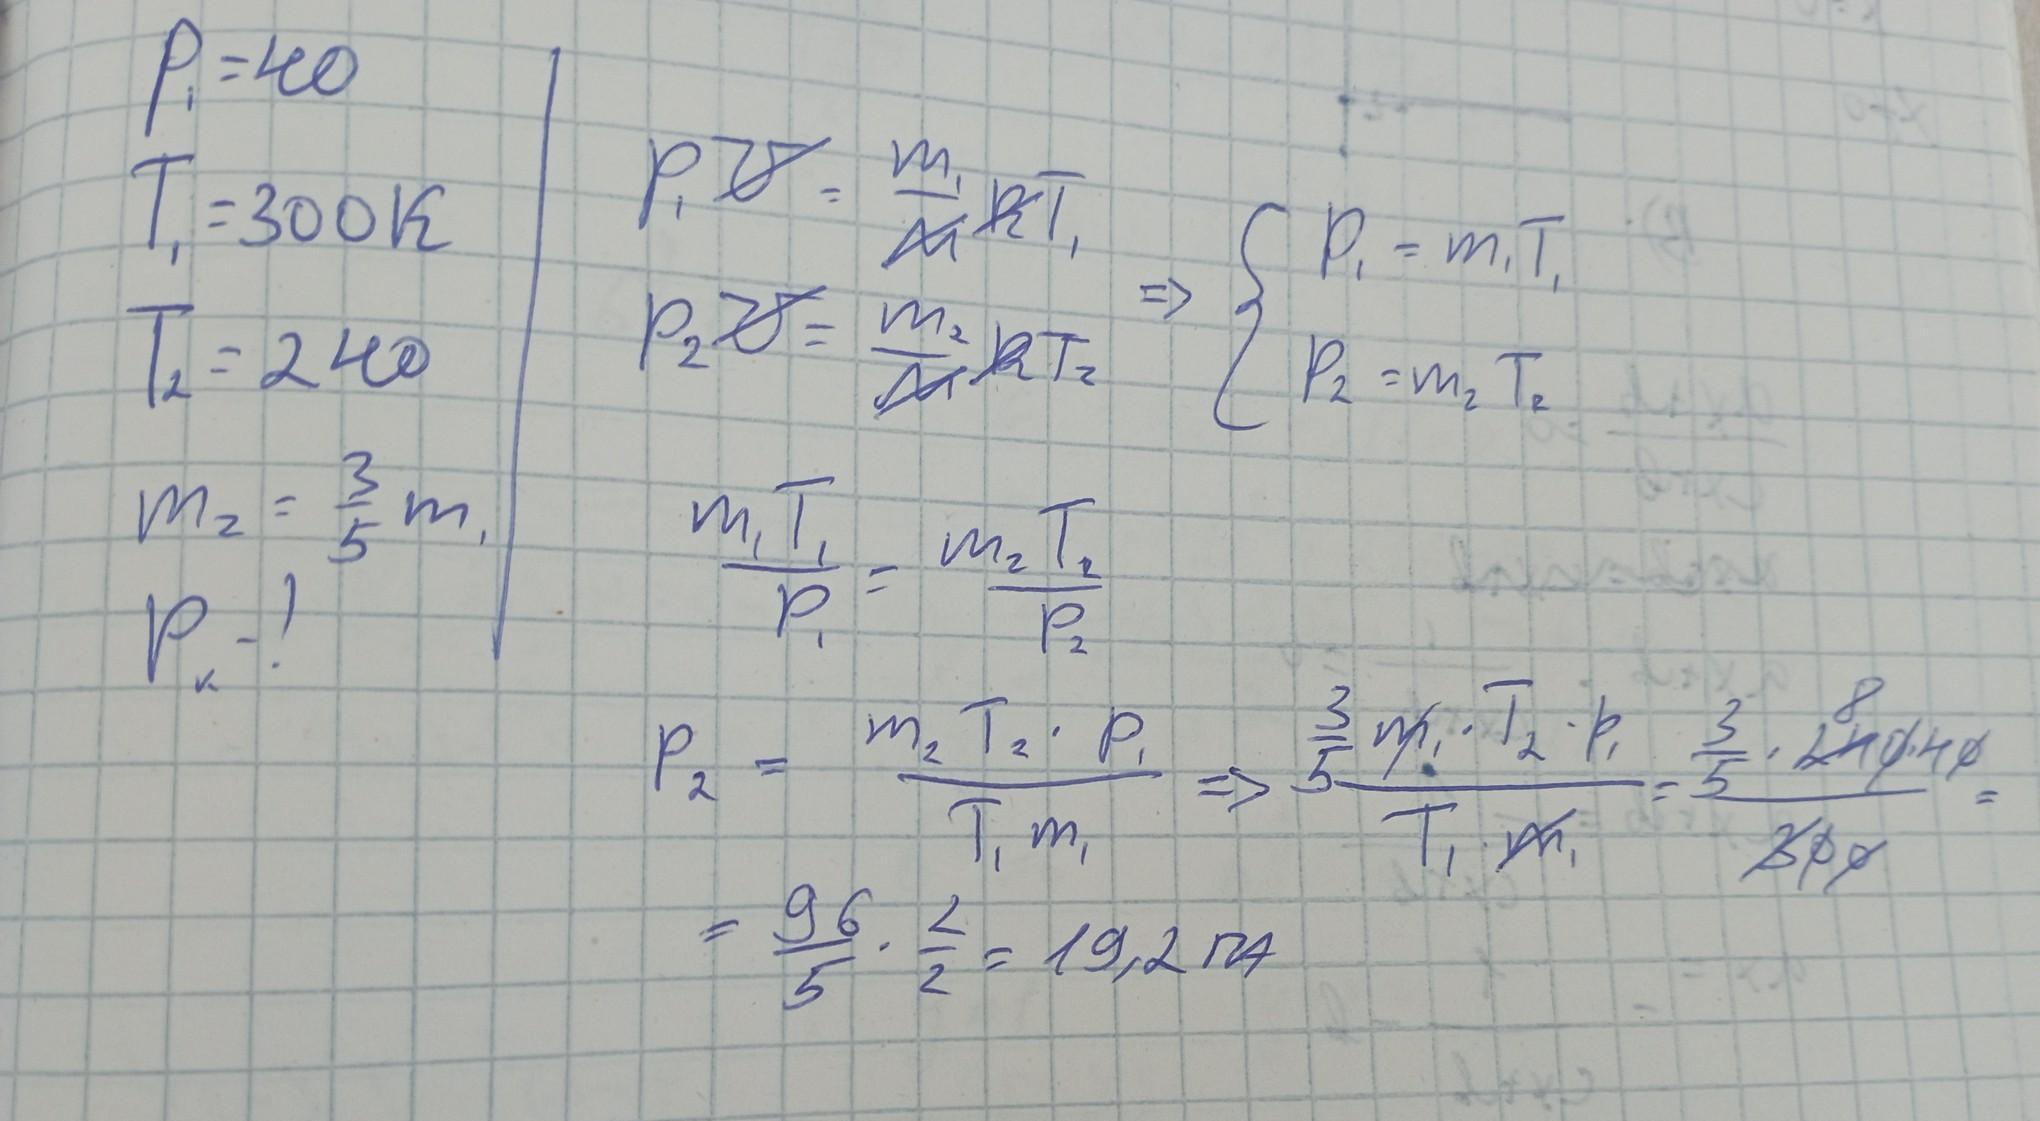 P₁ = 40
T₁ = 300 K
T₂ = 240
m₂ = 3/5 m₁
Pₖ - !
P₁V = m₁/M RT₁
P₂V = m₂/M RT₂
=> { P₁ = m₁T₁
P₂ = m₂T₂
m₁T₁/P₁ = m₂T₂/P₂
P₂ = m₂T₂·P₁/T₁m₁ => 3/5 m₁·T₂·P₁/T₁·m₁ = 3/5·240·40/300 =
8
= 96/5 · 2/2 = 19,2 ПА